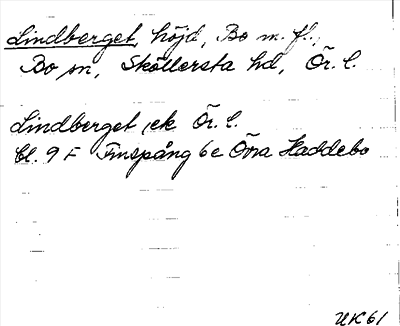 Lindberget, höjd, Bo m. fl.,
Bo sn, Sköllersta hd, Ör. l.
Lindberget, ek Ör. l.
Bl. 9 F Finspång 6e Övra Haddebo
UK61